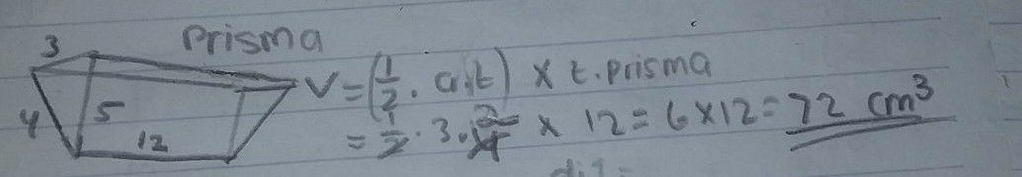 Prisma
3
4
5
12
V = (1/2 . a.t) x t.prisma
= 1/2 . 3 . 4 2 x 12 = 6 x 12 = 72 cm³